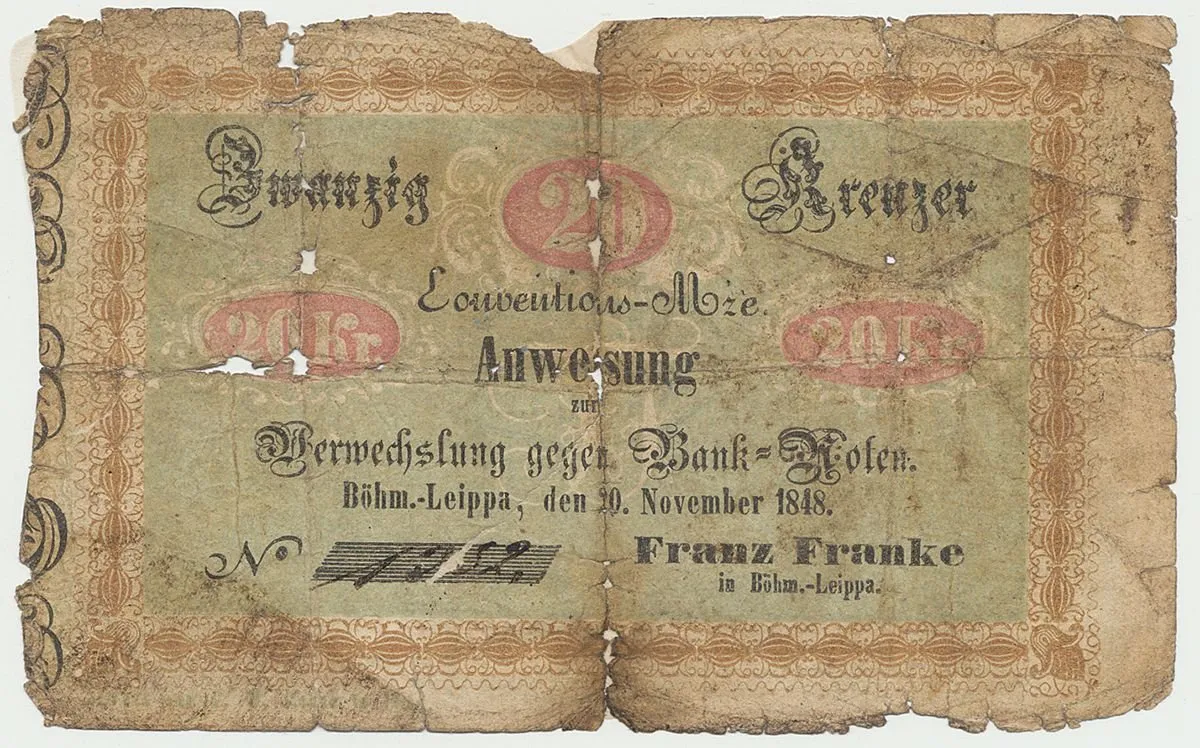 Zwanzig 20 Kreuzer
Conventions-Mze.
20 Kr. 20 Kr.
Anweisung
zur
Verwechslung gegen Bank-Noten.
Böhm.-Leippa, den 20. November 1848.
No 1352.
Franz Franke
in Böhm.-Leippa.